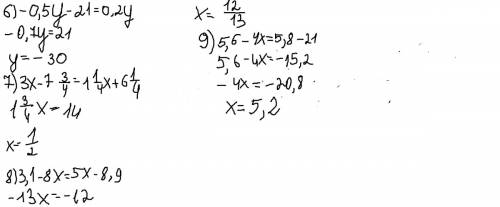 6) -0,5y-21=0,2y
-0,7y=21
y=-30
7) 3x-7 3/4=1 1/4x+6 1/4
1 3/4 x-14
x=1/2
8) 3,1-8x=5x-8,9
-13x=-12
x=12/13
9) 5,6-4x=5,8-21
5,6-4x=-15,2
-4x=-20,8
x=5,2